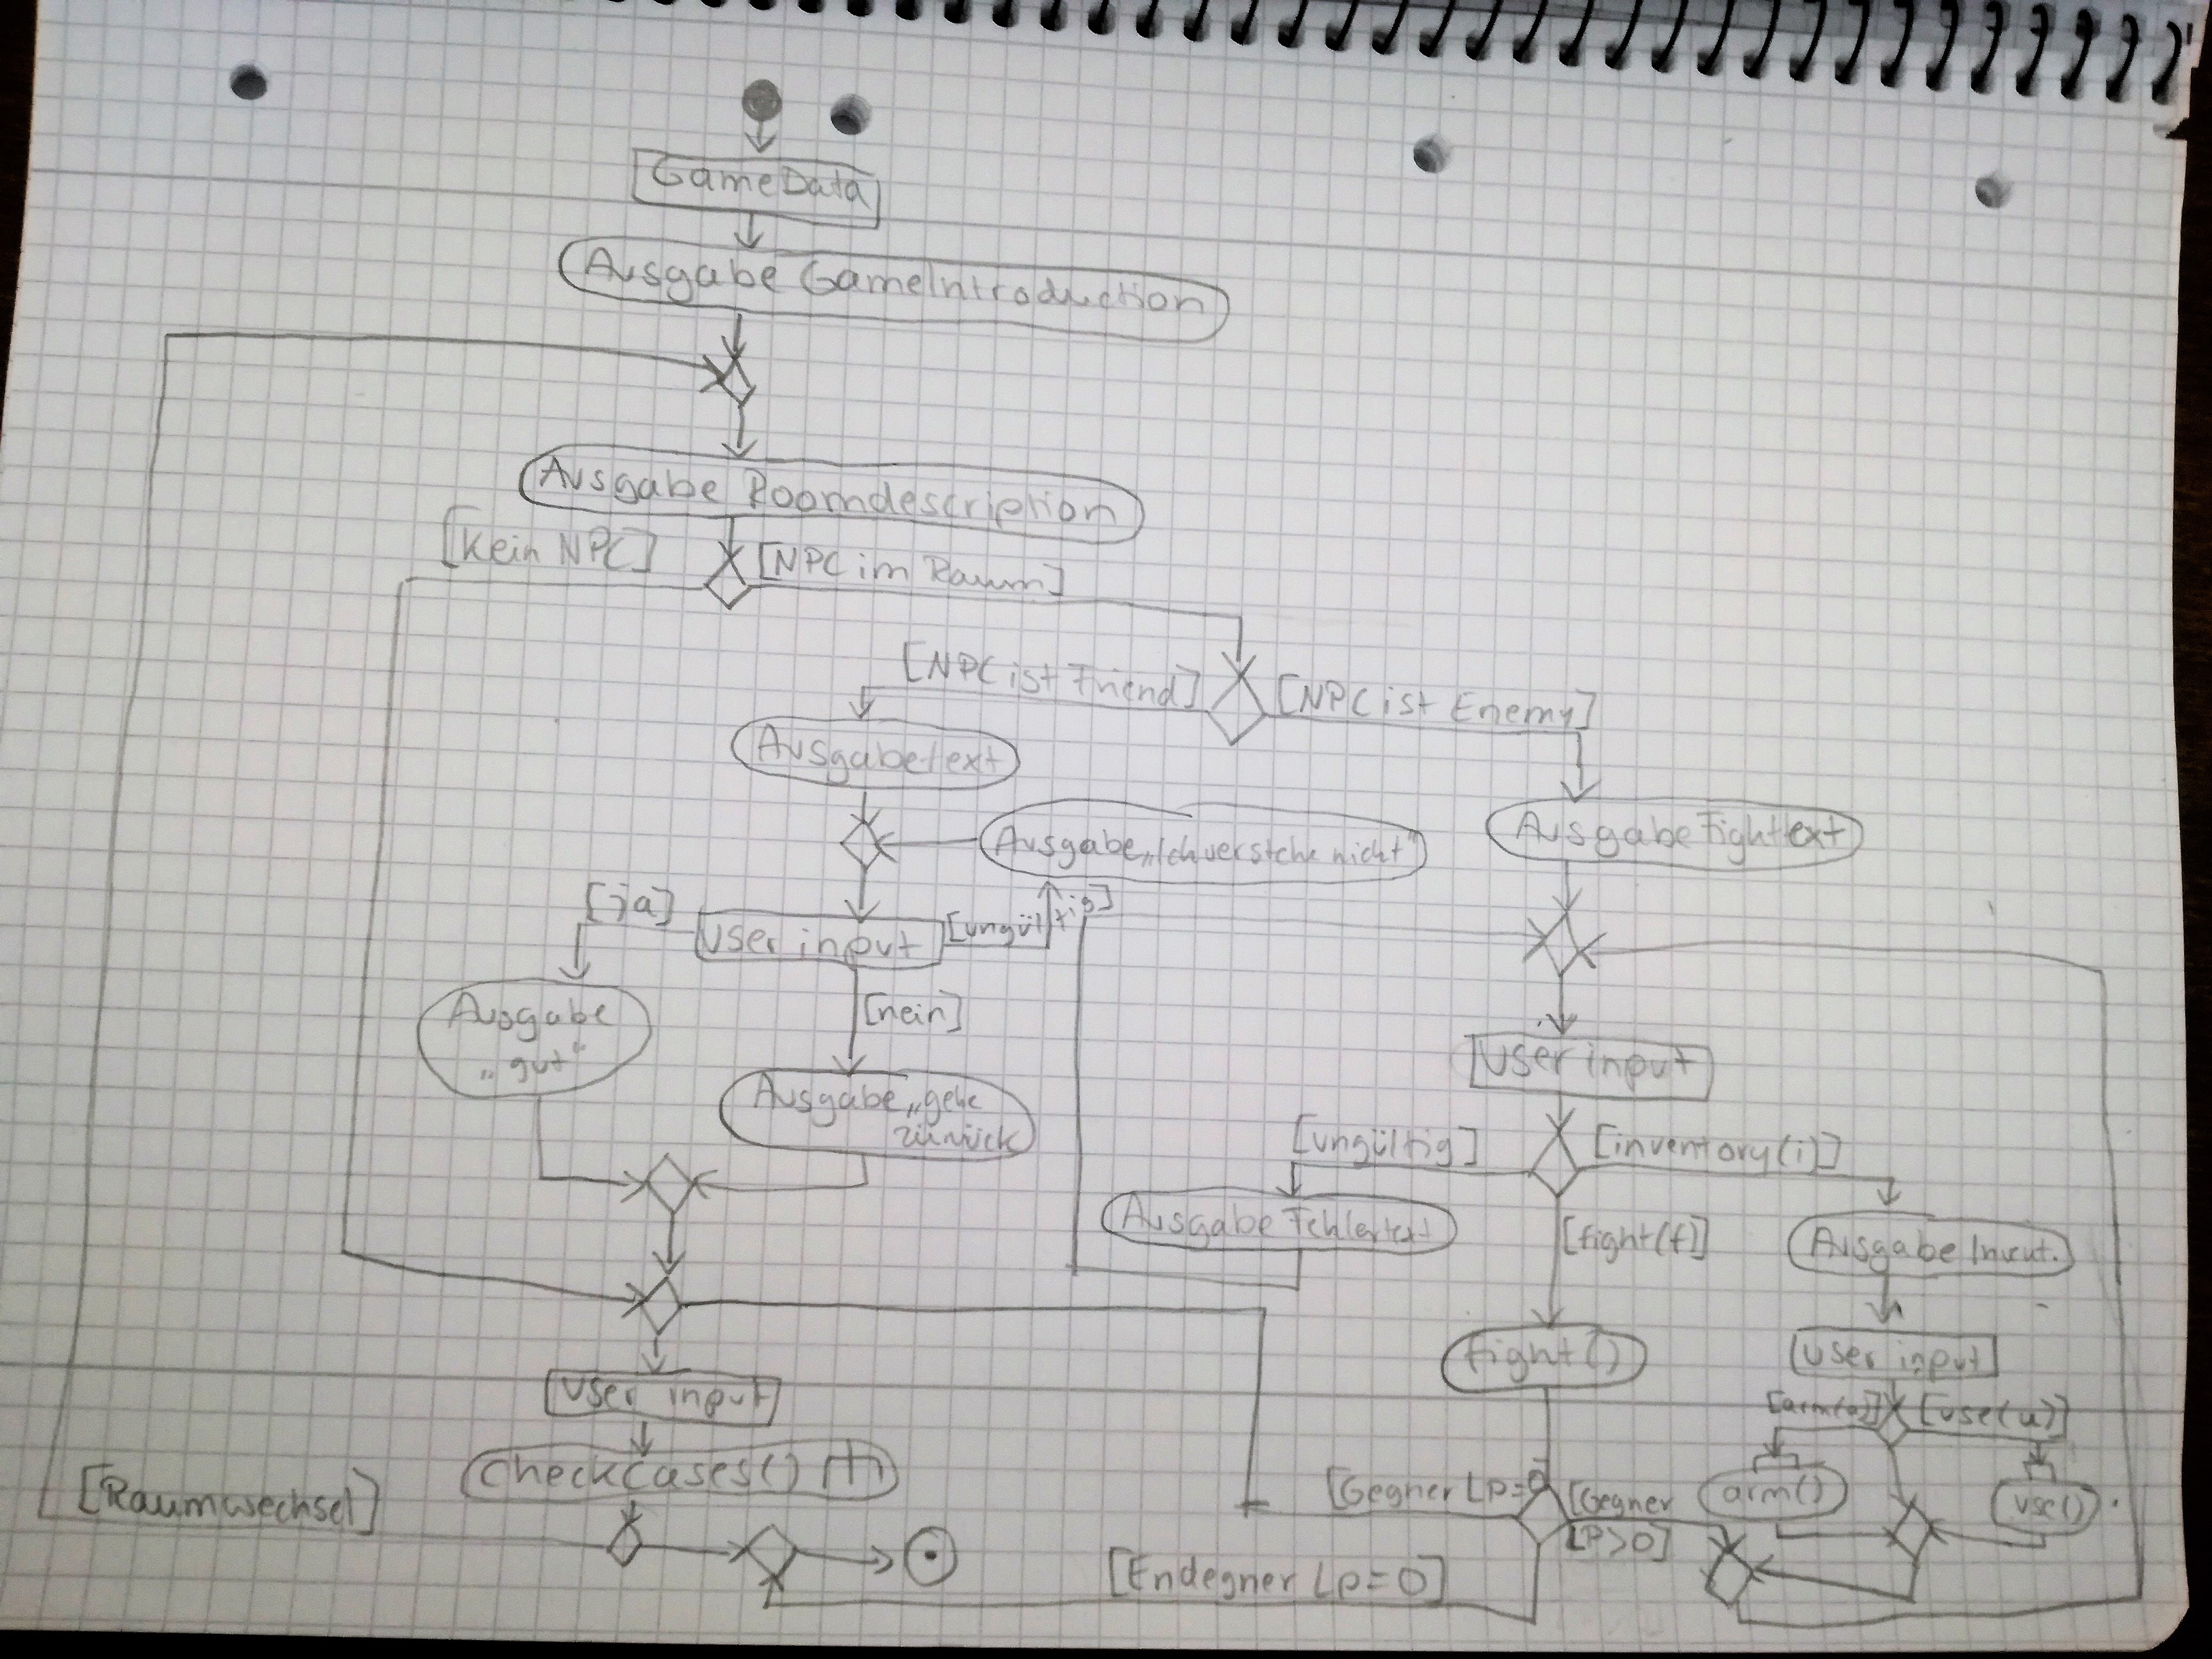 GameData
Ausgabe GameIntroduction
Ausgabe Roomdescription
[Kein NPC]
[NPC im Raum]
[NPC ist Friend]
[NPC ist Enemy]
Ausgabetext
Ausgabe „Ich verstehe nicht"
Ausgabe Fighttext
[ja]
User input
[ungültig]
[nein]
Ausgabe
„gut“
Ausgabe „gehe
zurück
User input
[ungültig]
[inventory(i)]
Ausgabe Fehlertext
[fight(f)]
Ausgabe Invent.
fight()
User input
[arm(a)]
[use(u)]
arm()
use()
User input
CheckCases()
[Raumwechsel]
[Gegner Lp=0]
[Gegner
LP>0]
[Endegner Lp=0]